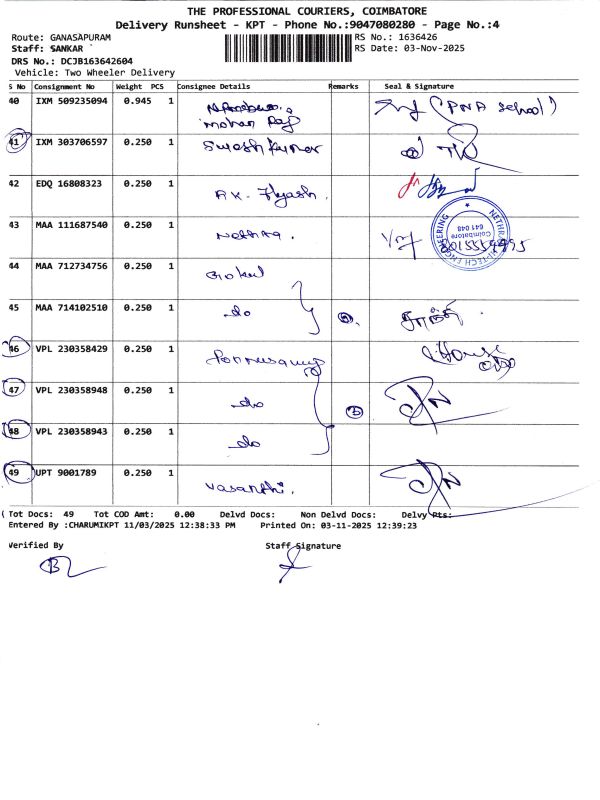 THE PROFESSIONAL COURIERS, COIMBATORE
Delivery Runsheet - KPT - Phone No.:9047080280 - Page No.:4
Route: GANASAPURAM
RS No.: 1636426
Staff: SANKAR
RS Date: 03-Nov-2025
DRS No.: DCJB163642604
Vehicle: Two Wheeler Delivery
S No Consignment No Weight PCS Consignee Details Remarks Seal & Signature
40 IXM 509235094 0.945 1 Mohan Raj (PNA School)
41 IXM 303706597 0.250 1 Suresh Kumar
42 EDQ 16808323 0.250 1 AK.
43 MAA 111687540 0.250 1 Nethra.
HI-TECH ENGINEERING
Coimbatore
641 048
44 MAA 712734756 0.250 1 Gokul
45 MAA 714102510 0.250 1 do 2
46 VPL 230358429 0.250 1 Ponnusamy
47 VPL 230358948 0.250 1 do 3
48 VPL 230358943 0.250 1 do
49 UPT 9001789 0.250 1 Vasanthi.
Tot Docs: 49 Tot COD Amt: 0.00 Delvd Docs: Non Delvd Docs: Delvy Pts:
Entered By :CHARUMIKPT 11/03/2025 12:38:33 PM Printed On: 03-11-2025 12:39:23
Verified By Staff Signature